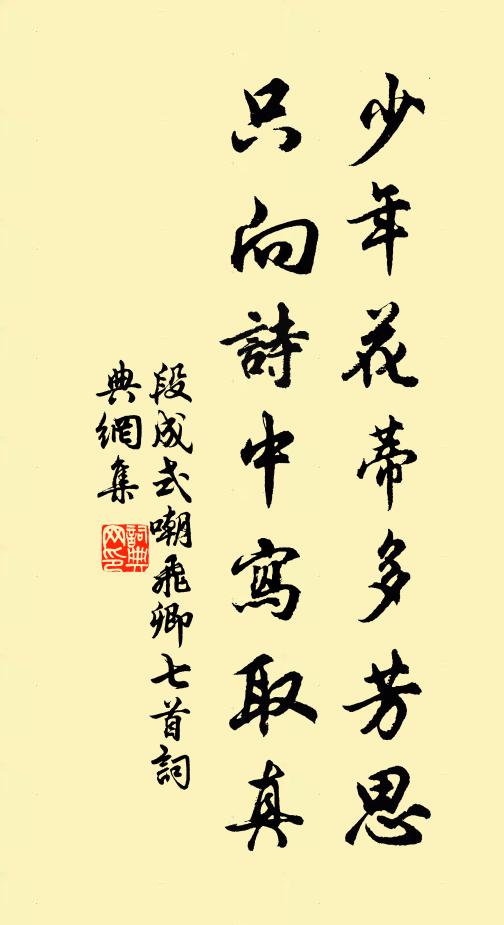 少年花蒂多芳思
只向詩中寫取真
段成式嘲飛卿七首詞
典網集
詞典
网印